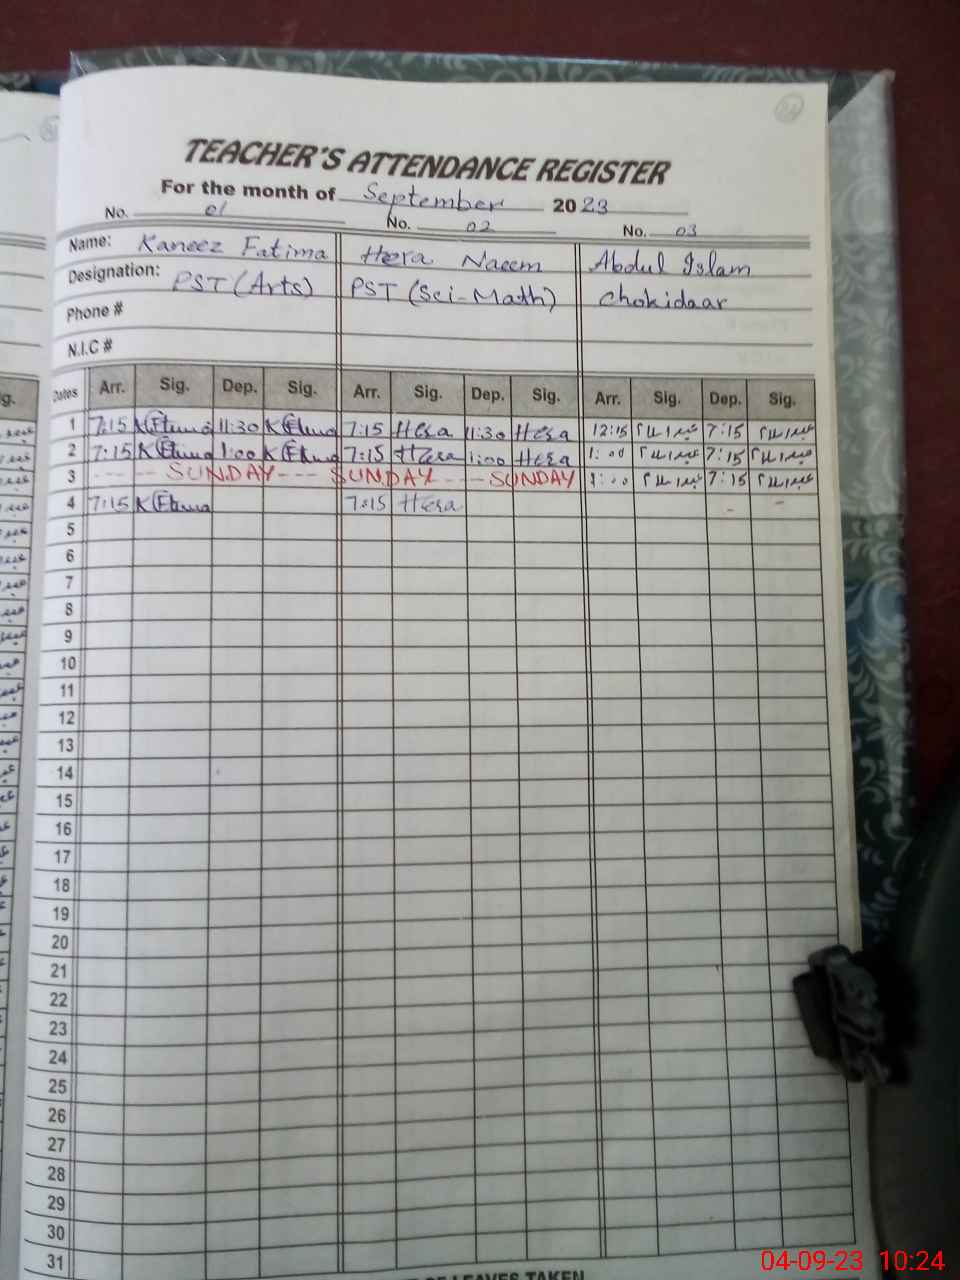 24
TEACHER'S ATTENDANCE REGISTER
For the month of September 2023
No. 01 No. 02 No. 03
Name: Kaneez Fatima Hera Naeem Abdul Islam
Designation: PST (Arts) PST (Sci-Math) Chokidaar
Phone #
N.I.C #
Dates Arr. Sig. Dep. Sig. Arr. Sig. Dep. Sig. Arr. Sig. Dep. Sig.
1 7:15 11:30 7:15 Hera 11:30 Hera 12:15 7:15
2 7:15 1:00 7:15 Hera 1:00 Hera 1:00 7:15
3 ----- SUNDAY --- SUNDAY ---- SUNDAY 1:00 7:15
4 7:15 7:15 Hera - -
5
6
7
8
9
10
11
12
13
14
15
16
17
18
19
20
21
22
23
24
25
26
27
28
29
30
31
OF LEAVES TAKEN
04-09-23 10:24